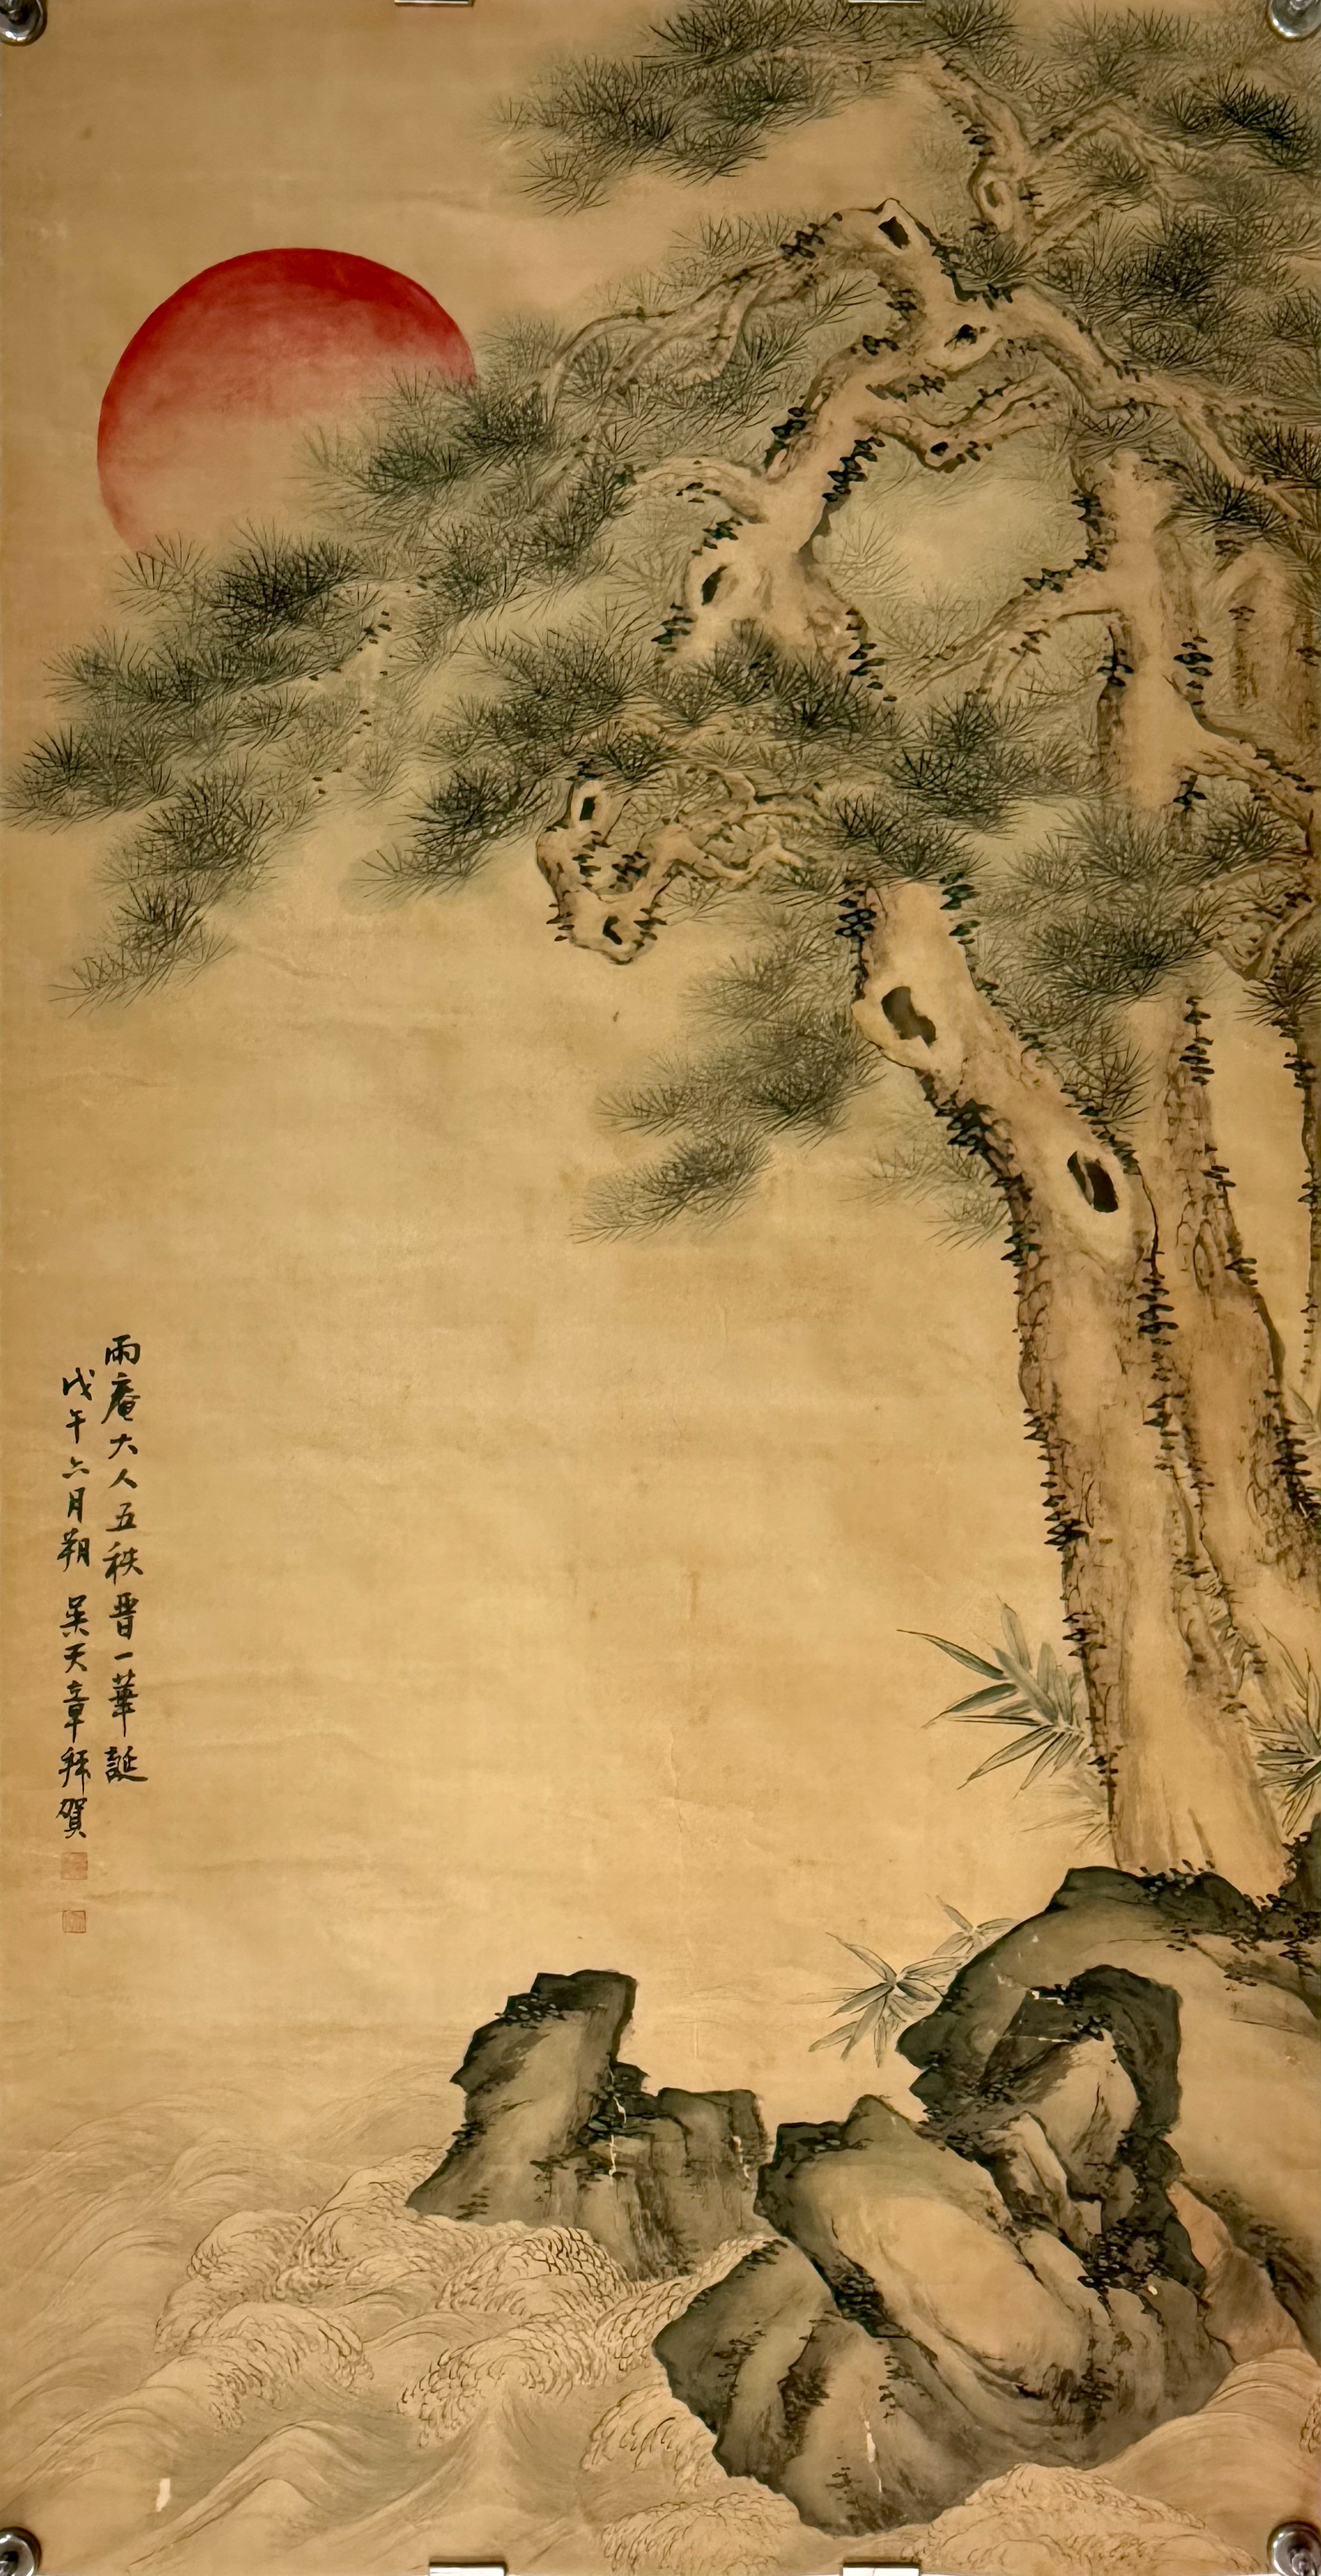 雨庵大人五秩晉一華誕
戊午六月朔 吴天章拜賀